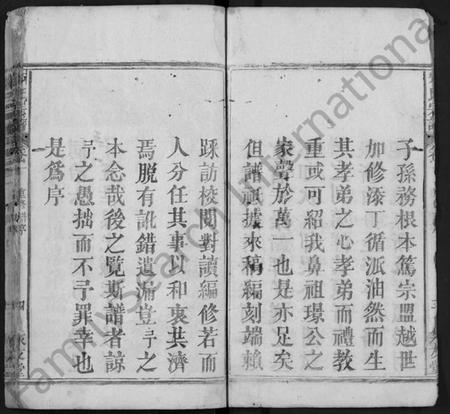 子孫務根本篤宗盟越世
加修添丁循派油然而生
其孝弟之心孝弟而禮教
重或可紹我鼻祖璟公之
家聲於萬一也是亦足矣
但譜祇據來稿編刻端賴
踩訪校閱對讀編修若而
人分任其事以和衷共濟
焉脫有訛錯遺漏豈予之
本念哉後之覽斯譜者諒
予之愚拙而不予罪幸也
是爲序
FamilySearch International